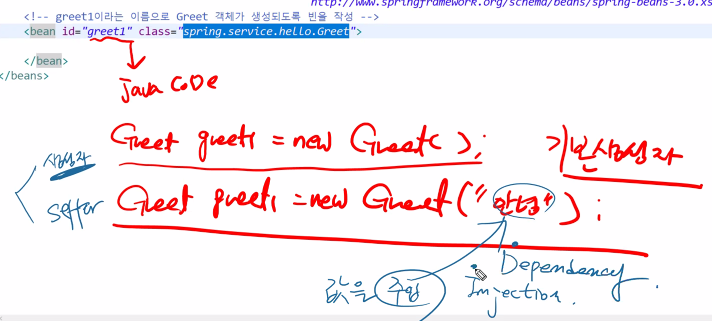 http://www.springframework.org/schema/beans/spring-beans-3.0.xs
<!-- greet1이라는 이름으로 Greet 객체가 생성되도록 빈을 작성 -->
<bean id="greet1" class="spring.service.hello.Greet">
</bean>
</beans>
Java CODe
Greet greet1 = new Greet( ); 기본생성자
생성자
Setter
Greet greet1 = new Greet("안녕");
값을 주입
Dependency
Injection.